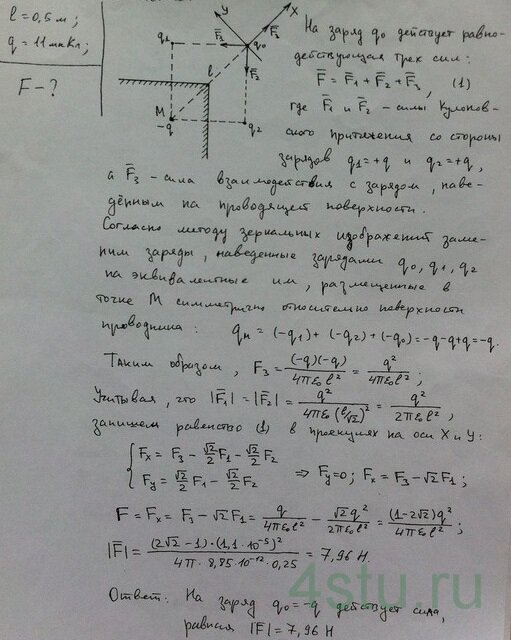 l = 0,5 м;
q = 11 мкКл;
F - ?
q₁
Y
X
F̄₃
q₀
F̄₁
F̄₂
l
M
-q
q₂
На заряд q₀ действует равно-
действующая трех сил:
F̄ = F̄₁ + F̄₂ + F̄₃, (1)
где F̄₁ и F̄₂ - силы Кулонов-
ского притяжения со стороны
зарядов q₁=+q и q₂=+q,
а F̄₃ - сила взаимодействия с зарядом, наве-
дённым на проводящей поверхности.
Согласно методу зеркальных изображений заме-
ним заряды, наведенные зарядами q₀, q₁, q₂
на эквивалентные им, размещенные в
точке M симметрично относительно поверхности
проводника: qм = (-q₁)+(-q₂)+(-q₀) = -q-q+q = -q.
Таким образом, F₃ = (-q)(-q)/4πε₀l² = q²/4πε₀l²;
Учитывая, что |F̄₁| = |F̄₂| = q²/4πε₀(l/√2)² = q²/2πε₀l²,
запишем равенство (1) в проекциях на оси X и Y:
{ Fx = F₃ - √2/2 F₁ - √2/2 F₂
Fy = √2/2 F₁ - √2/2 F₂ ⇒ Fy=0; Fx = F₃-√2F₁;
F = Fx = F₃ - √2F₁ = q/4πε₀l² - √2q²/2πε₀l² = (1-2√2)q²/4πε₀l²;
|F̄| = (2√2-1)·(1,1·10⁻⁵)²/4π·8,85·10⁻¹²·0,25 = 7,96 Н.
Ответ: На заряд q₀=-q действует сила,
равная |F̄| = 7,96 Н
4stu.ru